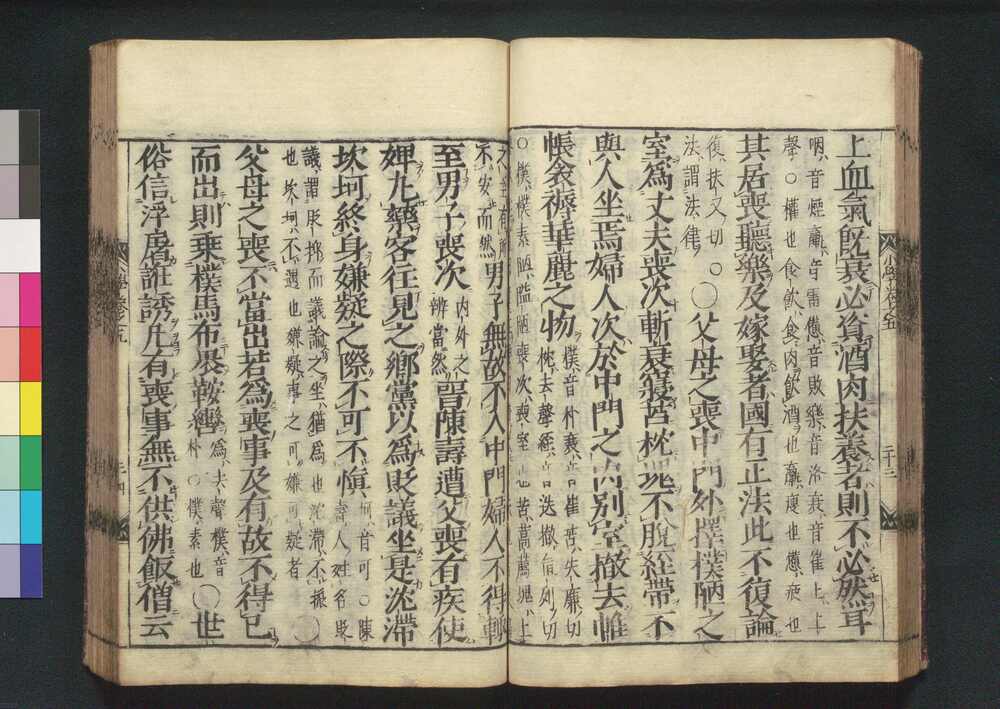 上血氣旣衰必資酒肉扶養者則不必然耳
咽音煙羸音雷憊音敗樂音洛衰音崔上上
聲○權也食飲食肉飲酒也羸瘦也憊疲也
其居喪聽樂及嫁娶者國有正法此不復論
復扶又切
法謂法律
○父母之喪中門外擇樸陋之
室爲丈夫喪次斬衰寢苫枕塊不脫絰帶不
與人坐焉婦人次於中門之內別室撤去帷
帳衾褥華麗之物
樸音朴衰音崔苫失廉切
枕去聲絰音迭撤直列切
○樸樸素陋隘陋喪次喪室也苫藁薦塊土
男子無故不入中門婦人不得輒
不安而然
至男子喪次
內外之
辨當然
晉陳壽遭父喪有疾使
婢丸藥客往見之鄉黨以爲貶議坐是沈滯
坎坷終身嫌疑之際不可不愼
坷音可○陳
壽人姓名貶
議謂貶抑而議論之坐猶爲也沈滯不振
也坎坷不遇也嫌疑事之可嫌可疑者
○
父母之喪不當出若爲喪事及有故不得已
而出則乘樸馬布裹鞍轡
爲去聲樸音
朴○樸素也
○世
俗信浮屠誑誘凡有喪事無不供佛飯僧云
小學卷之五
二十三
小學卷之五
二十四